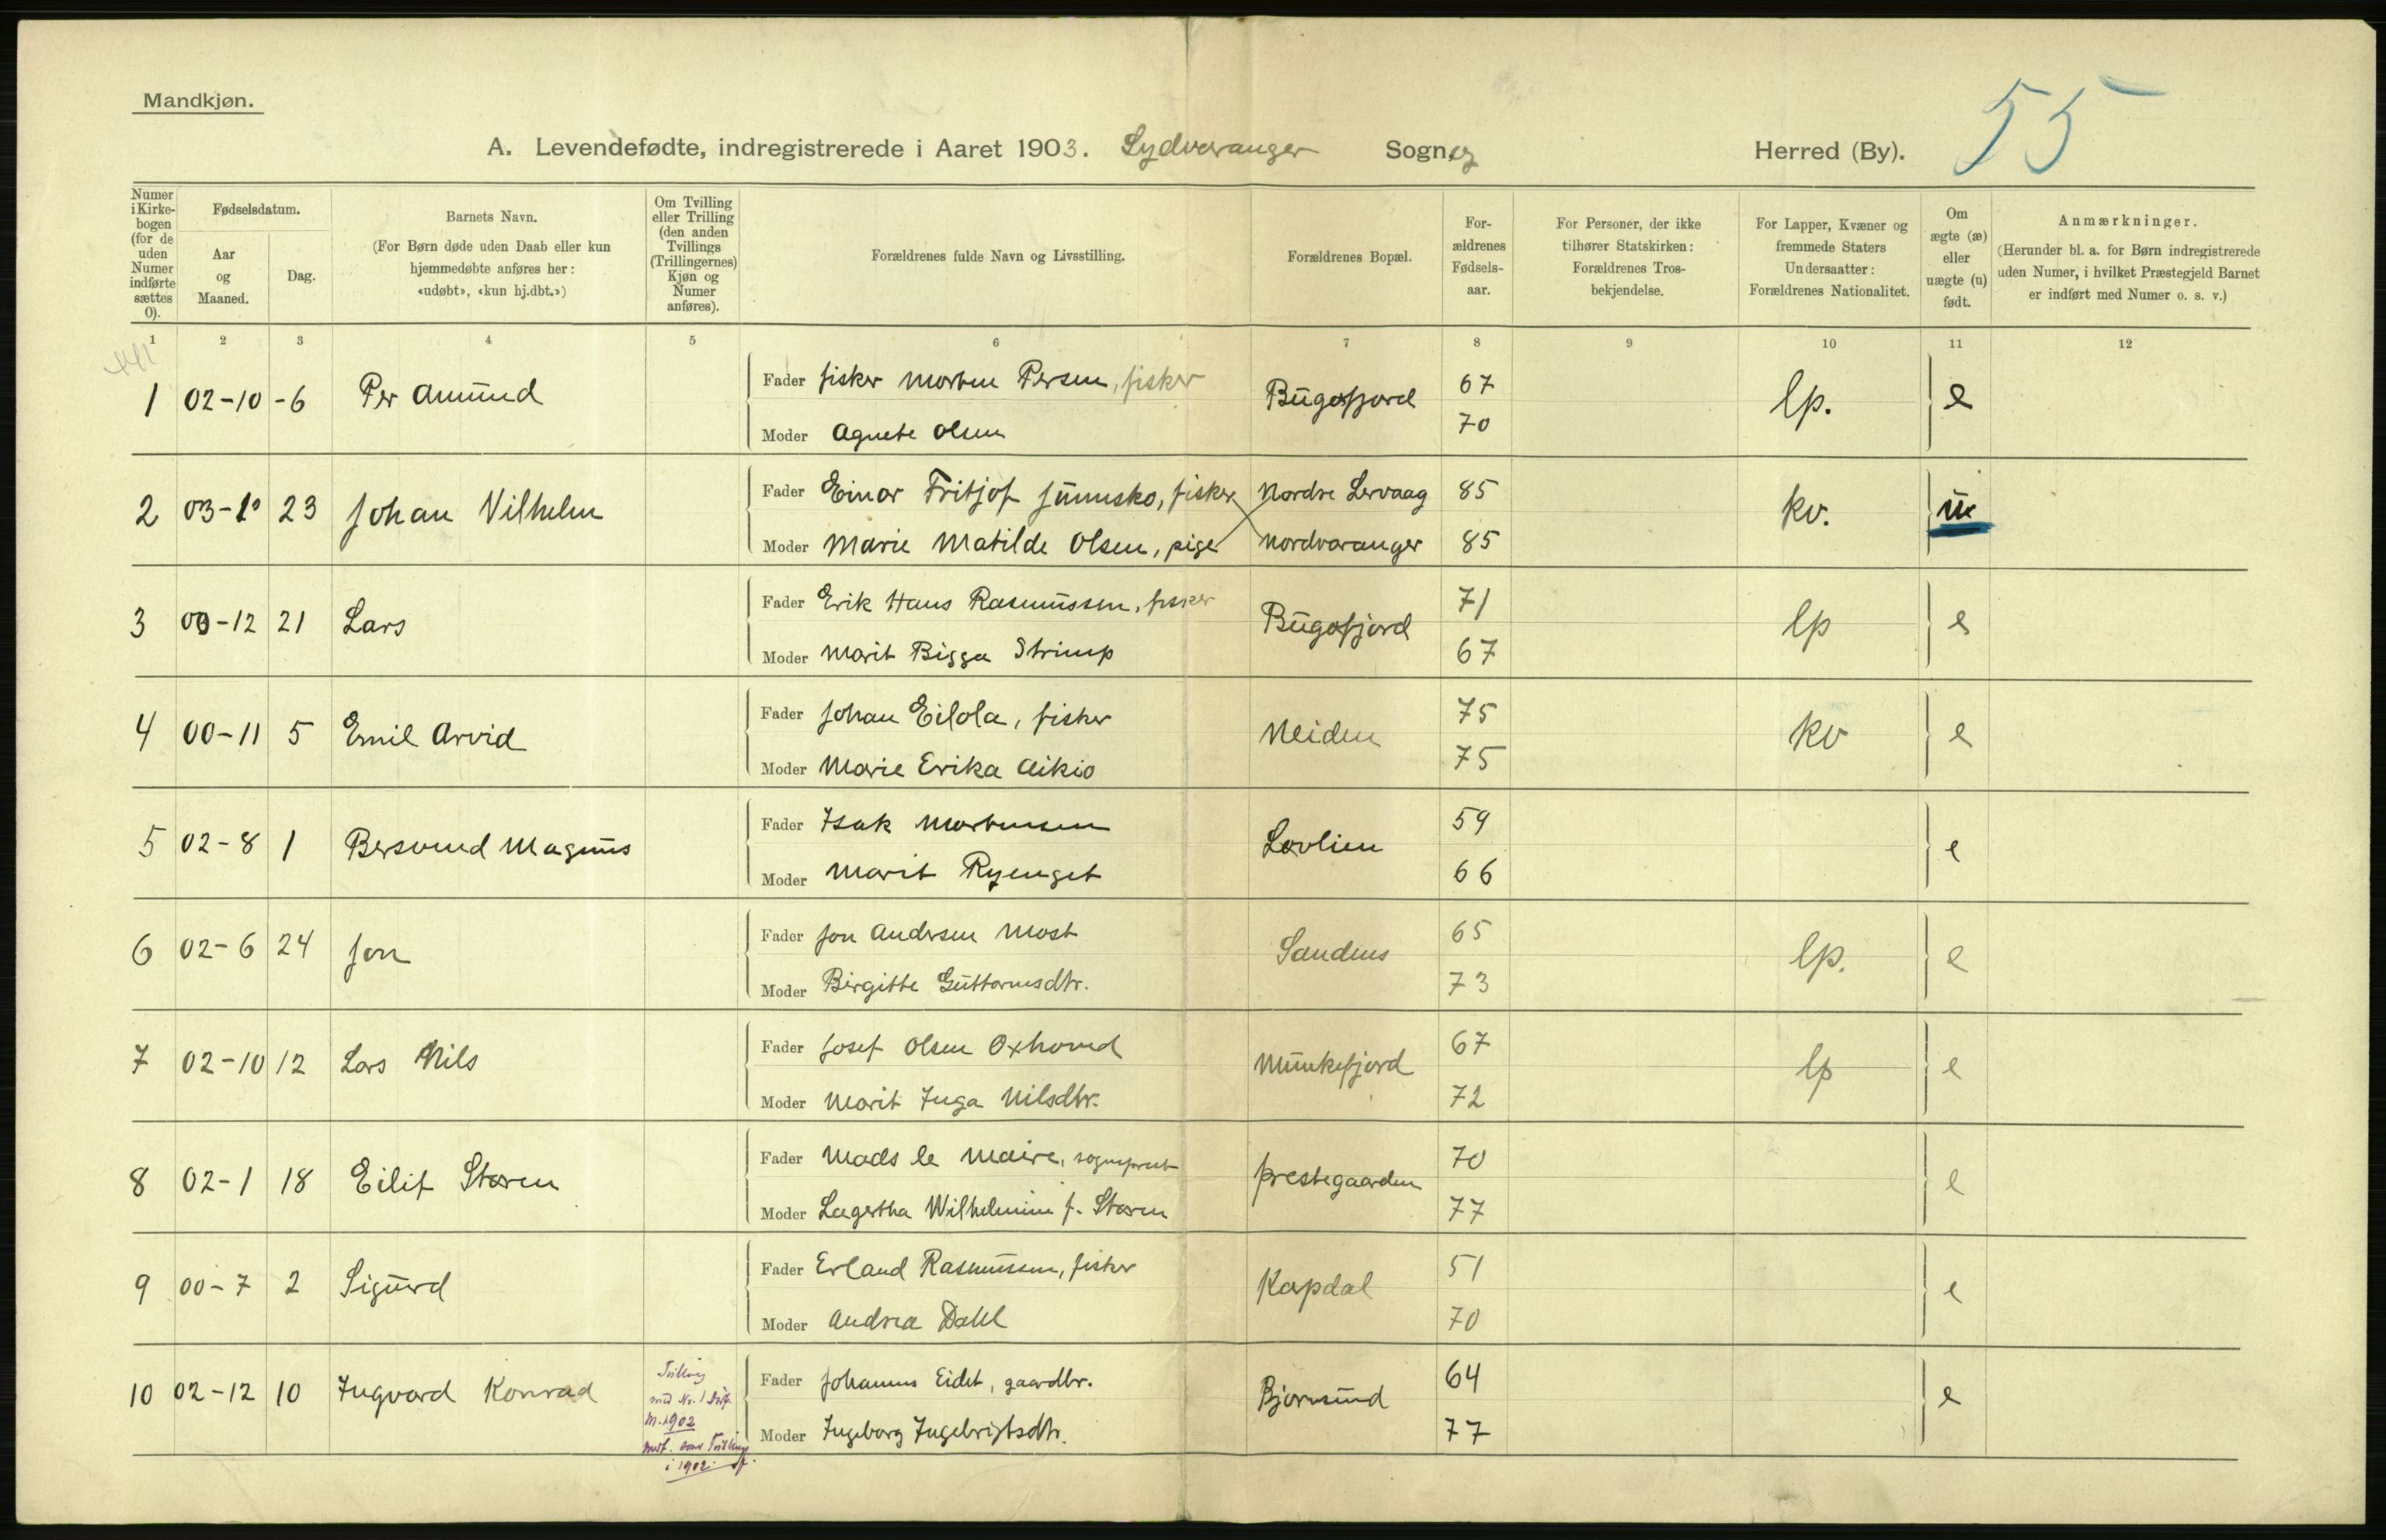 55
Mandkjøn.
A. Levendefødte, indregistrerede i Aaret 1903. Sydvaranger Sogn, og Herred (By).
Numer i Kirkebogen (for de uden Numer indførte sættes 0).
Fødselsdatum.
Aar og Maaned.
Dag.
Barnets Navn.
(For Børn døde uden Daab eller kun hjemmedøbte anføres her: «udøbt», «kun hj.dbt.»)
Om Tvilling eller Trilling (den anden Tvillings (Trillingernes) Kjøn og Numer anføres).
Forældrenes fulde Navn og Livsstilling.
Forældrenes Bopæl.
Forældrenes Fødselsaar.
For Personer, der ikke tilhører Statskirken: Forældrenes Trosbekjendelse.
For Lapper, Kvæner og fremmede Staters Undersaatter: Forældrenes Nationalitet.
Om ægte (æ) eller uægte (u) født.
Anmærkninger.
(Herunder bl. a. for Børn indregistrerede uden Numer, i hvilket Præstegjeld Barnet er indført med Numer o. s. v.)
1 2 3 4 5 6 7 8 9 10 11 12
1 02-10 -6 Per Amund Fader fisker Morten Persen, fisker Bugøfjord 67 lp. e
Moder Agnete Olsen 70
2 03-10 23 Johan Vilhelm Fader Einar Fritjof Junnsko, fisker Nordre Lervaag 85 kv. u
Moder Marie Matilde Olsen, pige Nordvaranger 85
3 00-12 21 Lars Fader Erik Hans Rasmussen, fisker Bugøfjord 71 lp e
Moder Marit Bigga Strimp 67
4 00-11 5 Emil Arvid Fader Johan Eilola, fisker Neiden 75 kv e
Moder Marie Erika Aikio 75
5 02-8 1 Bersvend Magnus Fader Isak Mortensen Løvlien 59 e
Moder Marit Ryenget 66
6 02-6 24 Jon Fader Jon Andersen Most Sandnes 65 lp. e
Moder Birgitte Guttormsdtr. 73
7 02-10 12 Lars Nils Fader Josef Olsen Oxhoved Munkefjord 67 lp e
Moder Marit Inga Nilsdtr. 72
8 02-1 18 Eilif Støren Fader Mads le Maire, sogneprest prestegaarden 70 e
Moder Lagertha Wilhelmine f. Støren 77
9 00-7 2 Sigurd Fader Erland Rasmussen, fisker Kapdal 51 e
Moder Andrea Dahl 70
10 02-12 10 Ingvard Konrad Trilling Fader Johannes Eidet, gaardbr. Bjørnsund 64 e
med Nr. 1
M. 1902
Moder Ingeborg Ingebrigtsdtr. 77
i 1902.